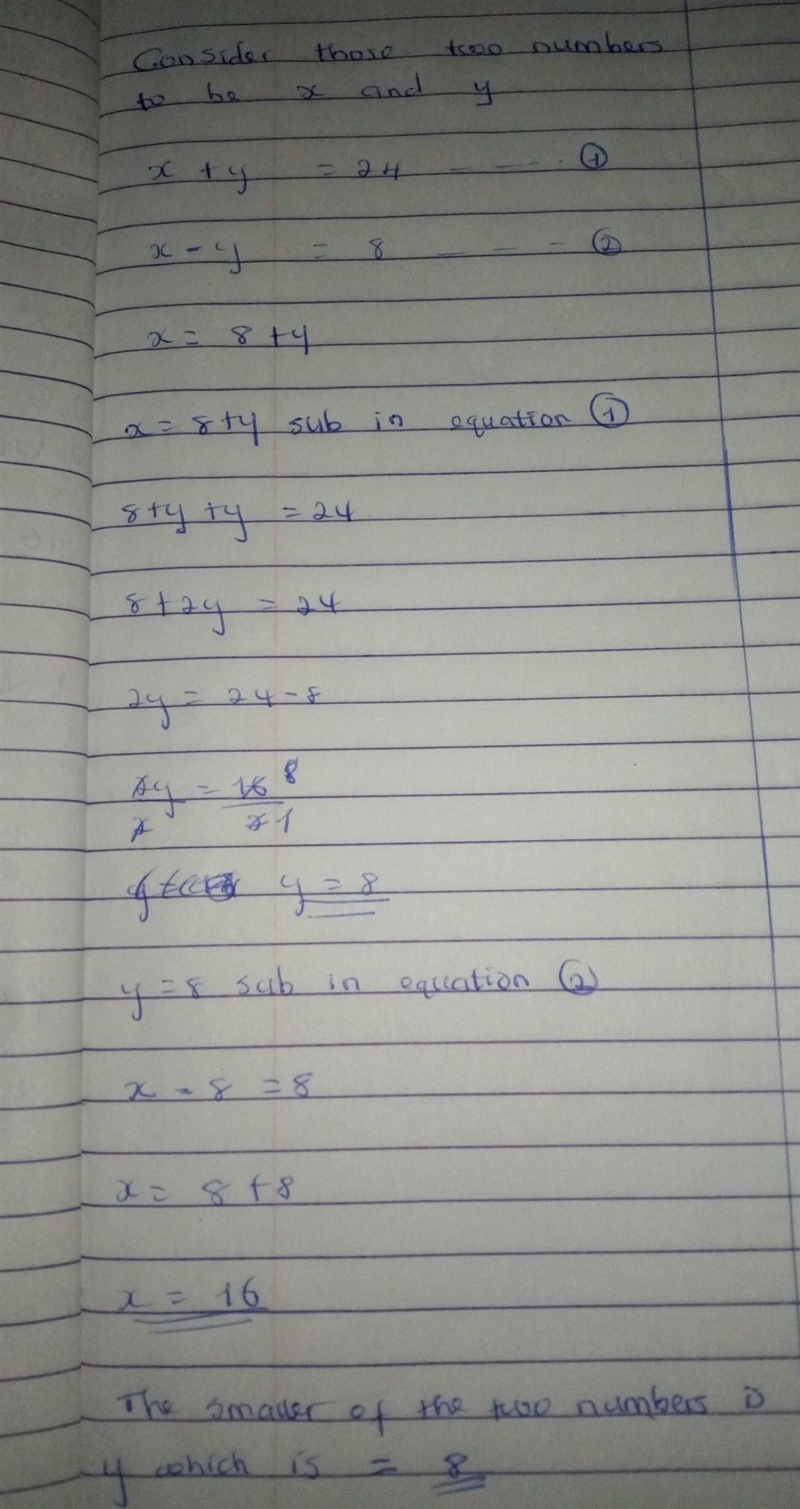 Consider those two numbers
to be x and y
x + y = 24 - - - ①
x - y = 8 - - - ②
x = 8 + y
x = 8+y sub in equation ①
8+y +y = 24
8 + 2y = 24
2y = 24 - 8
2y = 16 8
2 2 1
y = 8
y = 8 sub in equation ②
x - 8 = 8
x = 8 + 8
x = 16
The smaller of the two numbers is
y which is = 8